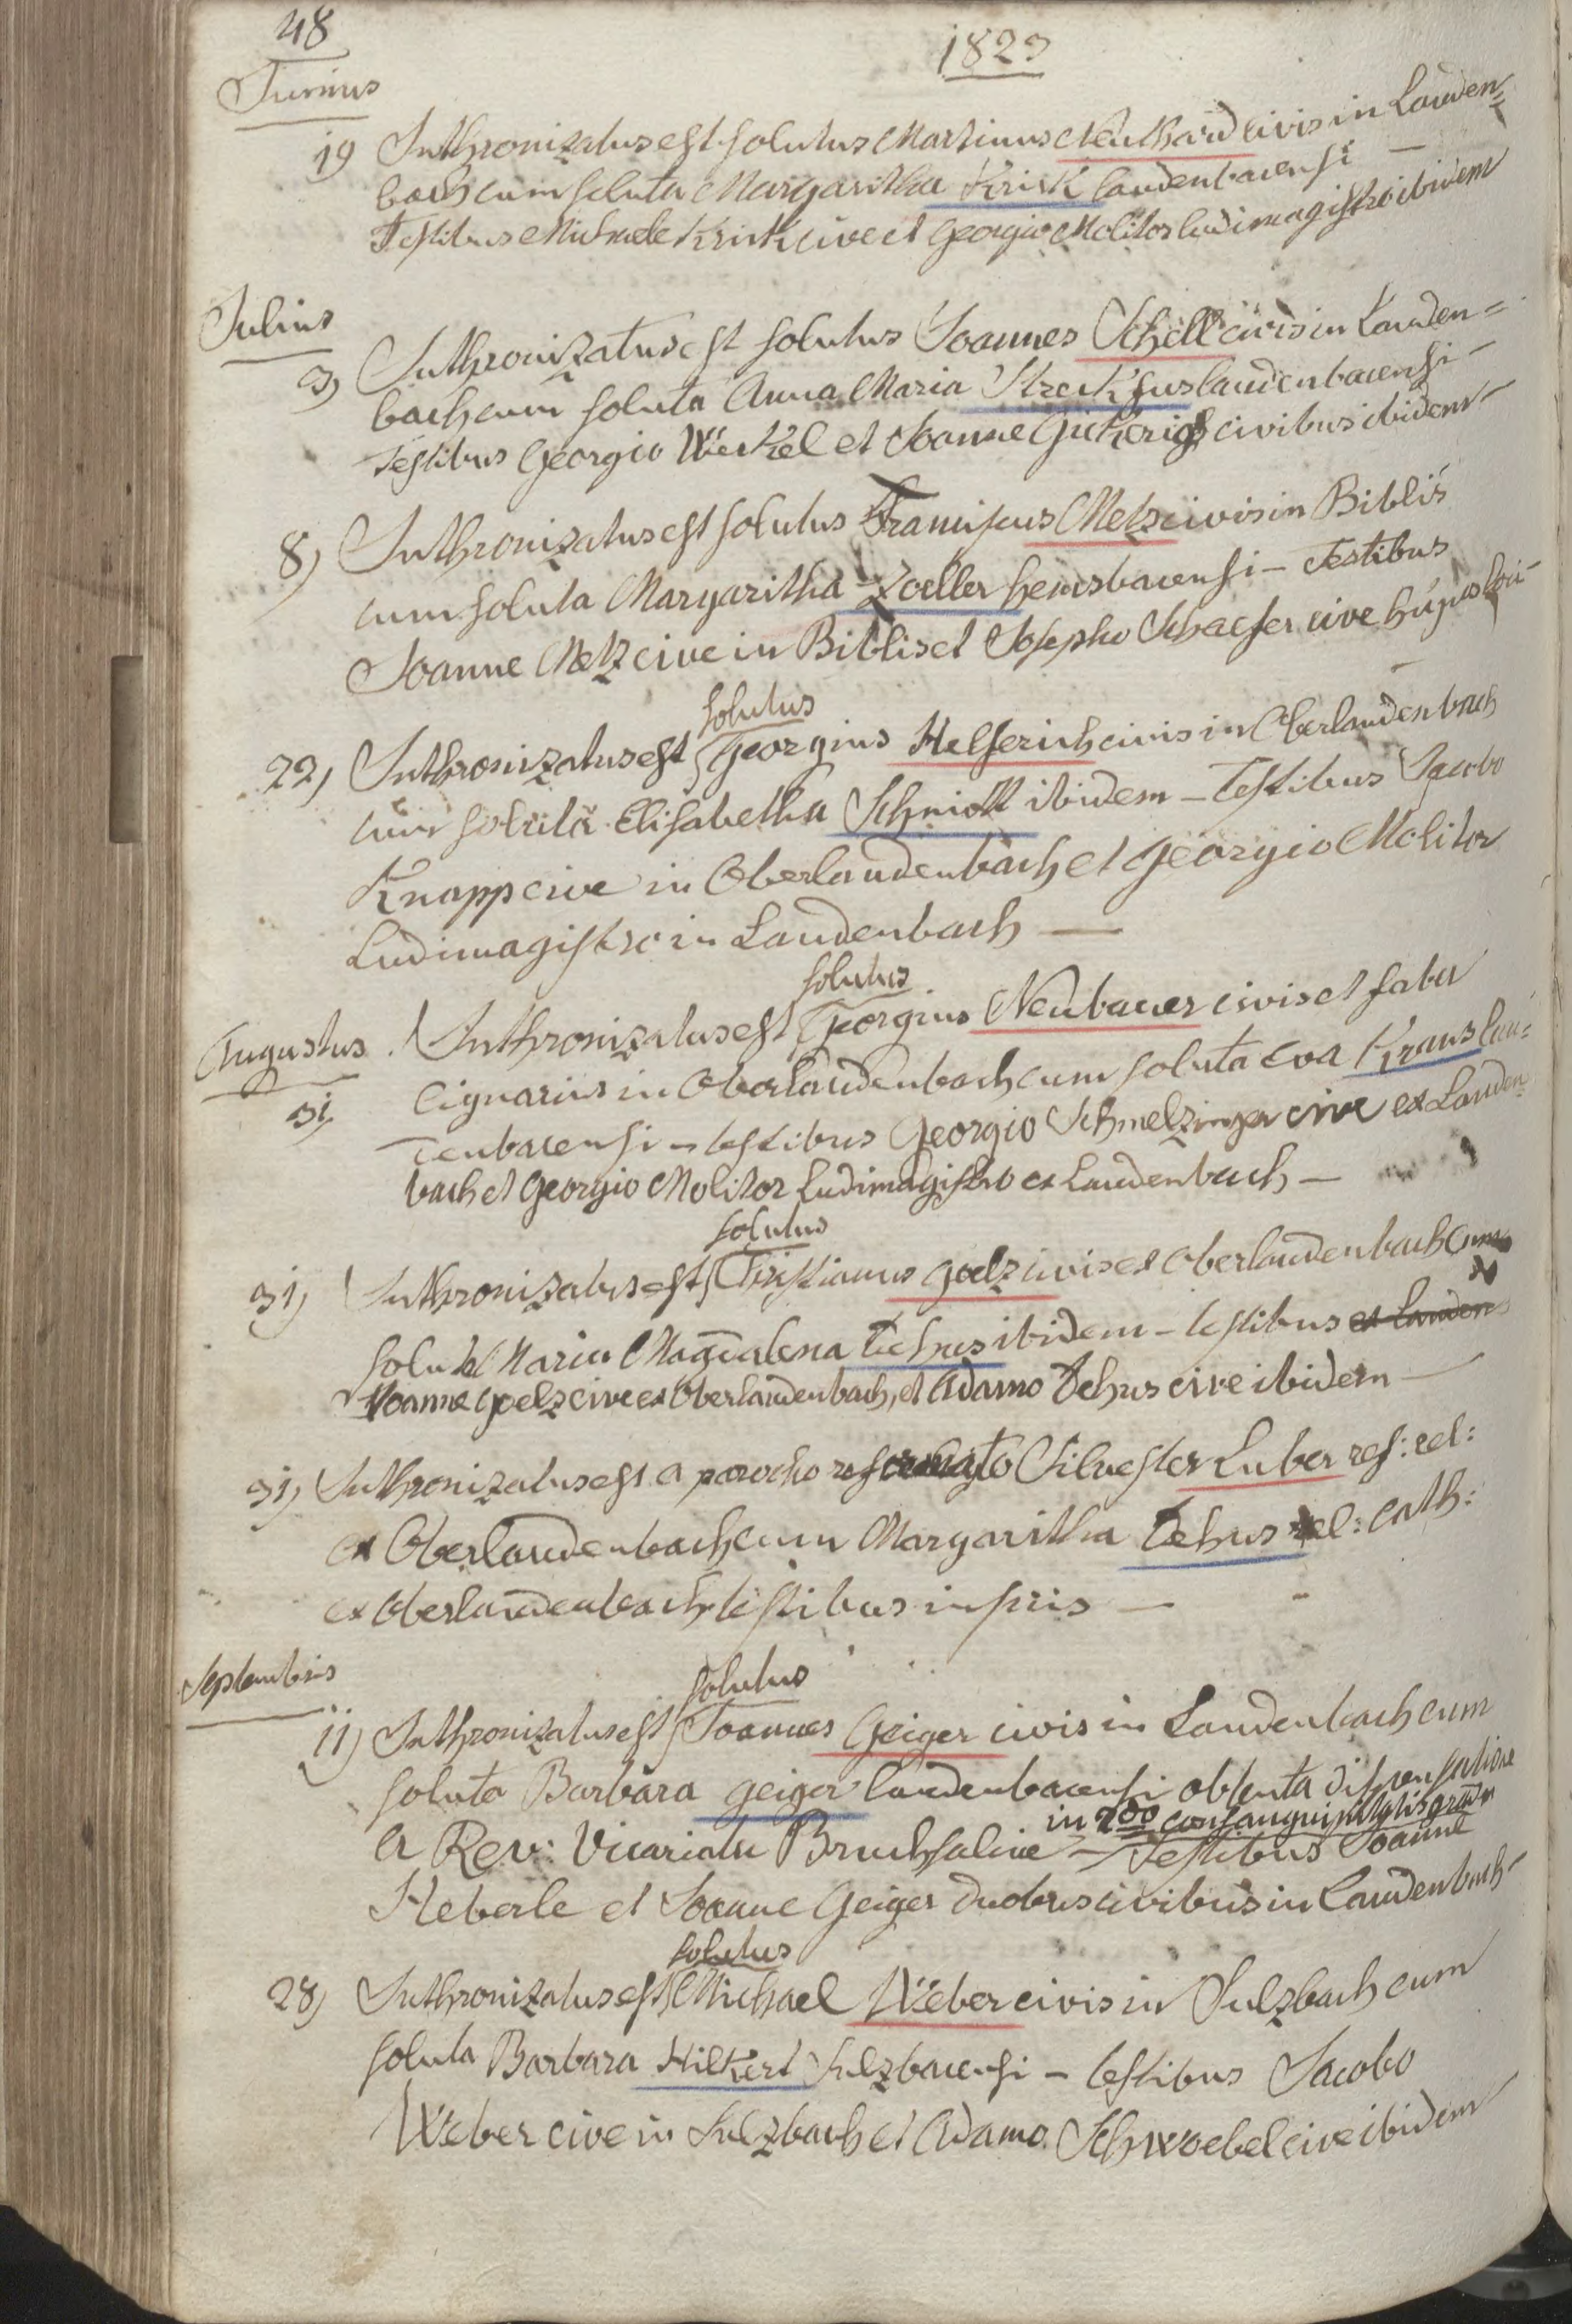 48
1823
Junius
19 Inthronizatus est solutus Martinus Neuthard civis in Lauden=
bach cum soluta Margaritha Krick laudenbacensi —
Testibus Michaele Krick cive et Georgio Molitor ludimagistro ibidem
Julius
3) Inthronizatus est solutus Joannes Schell civis in Lauden=
bach cum soluta Anna Maria Streckfus laudenbacensi —
Testibus Georgio Werkel et Joanne civibus ibidem —
8) Inthronizatus est solutus Franciscus Metz civis in Biblis
cum soluta Margaritha Zoeller hemsbacensi — Testibus
Joanne Metz cive in Biblis et Josepho Schaefer cive hujus loci —
solutus
22) Inthronizatus est Georgius Helferich civis in Oberlaudenbach
cum soluta Elisabetha Schmidt ibidem — Testibus Jacobo
Knapp cive in Oberlaudenbach et Georgio Molitor
Ludimagistro in Laudenbach —
solutus
Augustus Inthronizatus est Georgius Neubauer civis et faber
31) lignarius in Oberlaudenbach cum soluta Eva Kraus lau=
denbacensi — testibus Georgio Schmelzinger cive ex Lauden
bach et Georgio Molitor Ludimagistro ex Laudenbach —
solutus
31) Inthronizatus est Christianus Goelz civis ex Oberlaudenbach cum
soluta Maria Magdalena Dehus ibidem — testibus ex Lauden
Joanne Goelz cive ex Oberlaudenbach, et Adamo Dehus cive ibidem —
31) Inthronizatus est a parocho reformato Silvester Luber ref: rel:
ex Oberlaudenbach cum Margaritha Dehus rel: cath:
ex Oberlaudenbach testibus inscriis —
Septembris
solutus
11) Inthronizatus est Joannes Geiger civis in Laudenbach cum
soluta Barbara Geiger laudenbacensi obtenta dispensatione
in 2do consanguinitatis gradu
a Rev: Vicariatu Bruchsaliae — Testibus Joanne
Heberle et Joanne Geiger duobus civibus in Laudenbach —
solutus
28) Inthronizatus est Michael Weber civis in Sulzbach cum
soluta Barbara Hilkert Sulzbacensi — testibus Jacobo
Weber cive in Sulzbach et Adamo Schwoebel cive ibidem